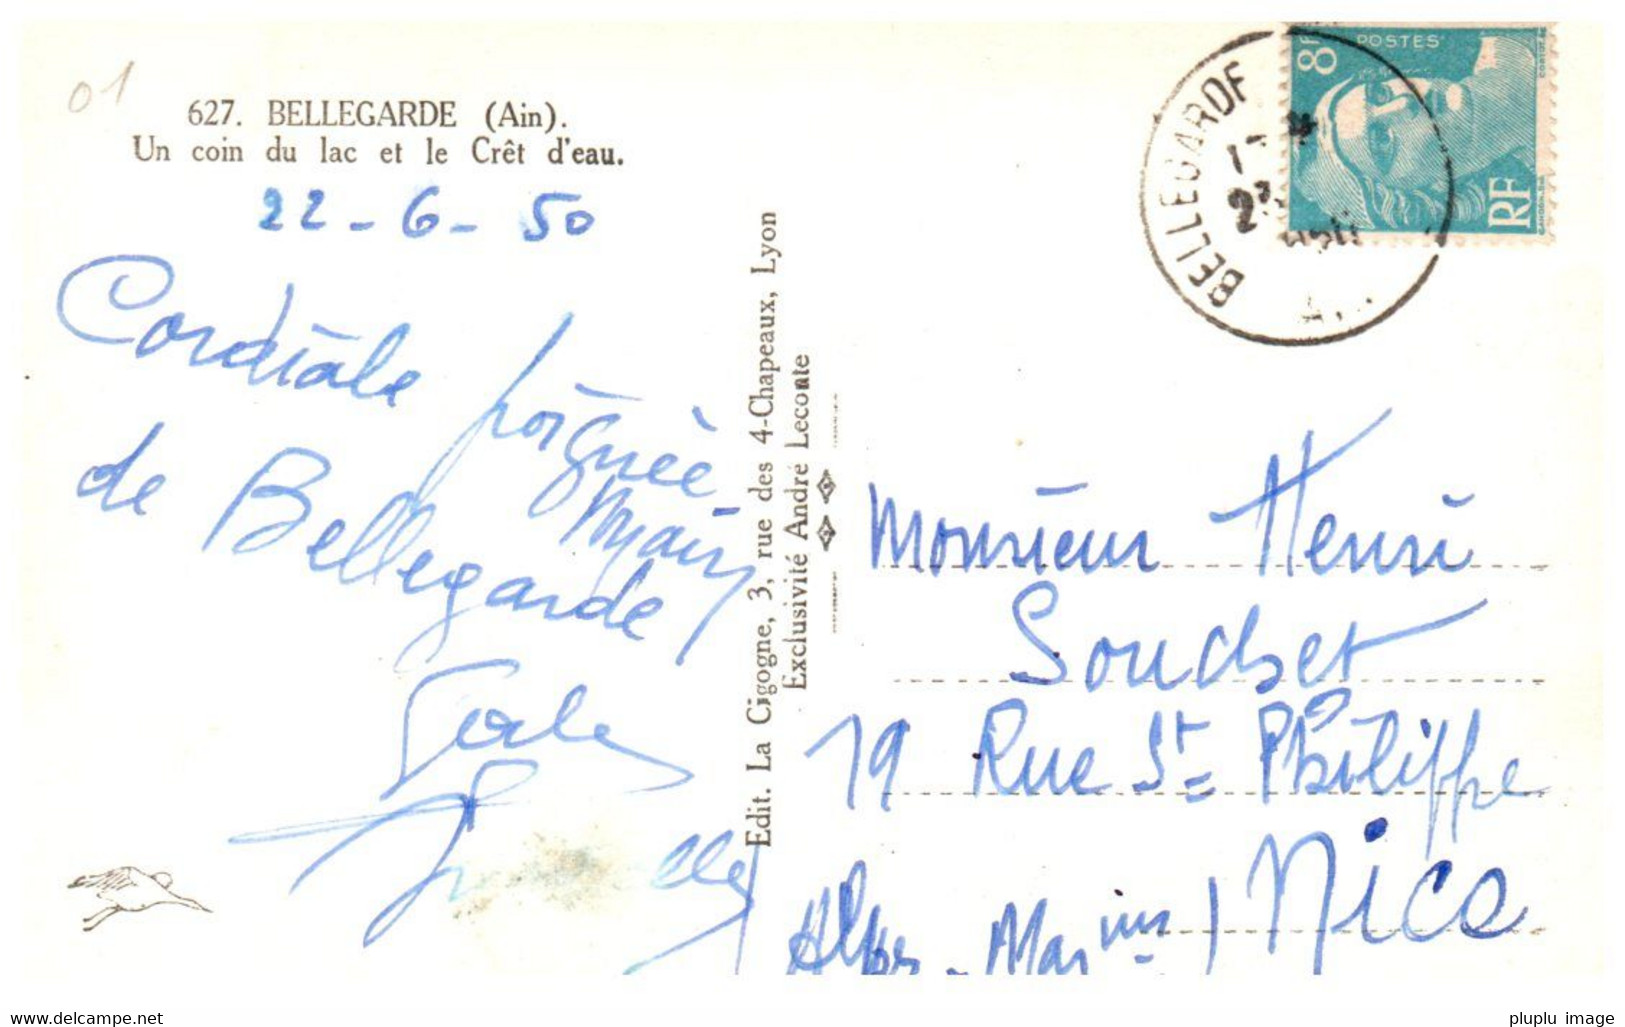 01
627. BELLEGARDE (Ain).
Un coin du lac et le Crêt d'eau.
22-6-50
Cordiale poignée
main
de Bellegarde
Edit. La Cigogne, 3, rue des 4-Chapeaux, Lyon
Exclusivité André Leconte
BELLEGARDE
8F
POSTES
RF
Monsieur Henri
Souchet
19 Rue St Philippe
Nice
Alpes-Marimes
www.delcampe.net
pluplu image